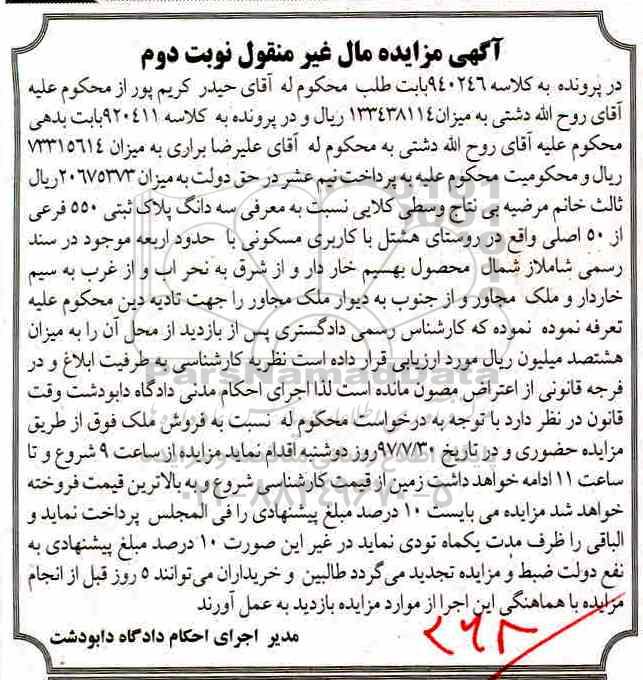 آگهی مزایده مال غیر منقول نوبت دوم
در پرونده به کلاسه ۹۴۰۲۴۶بابت طلب محکوم له آقای حیدر کریم پور از محکوم علیه
آقای روح الله دشتی به میزان۱۳۳۴۳۸۱۱۴ ریال و در پرونده به کلاسه ۹۲۰۴۱۱بابت بدهی
محکوم علیه آقای روح الله دشتی به محکوم له آقای علیرضا براری به میزان ۷۳۳۱۵۶۱۴
ریال و محکومیت محکوم علیه به پرداخت نیم عشر در حق دولت به میزان ۲۰۶۷۵۳۷۳ریال
ثالث خانم مرضیه بی نتاج وسطی کلایی نسبت به معرفی سه دانگ پلاک ثبتی ۵۵۰ فرعی
از ۵۰ اصلی واقع در روستای هشتل با کاربری مسکونی با حدود اربعه موجود در سند
رسمی شاملاز شمال محصول بهسیم خار دار و از شرق به نحر اب و از غرب به سیم
خاردار و ملک مجاور و از جنوب به دیوار ملک مجاور را جهت تادیه دین محکوم علیه
تعرفه نموده نموده که کارشناس رسمی دادگستری پس از بازدید از محل آن را به میزان
هشتصد میلیون ریال مورد ارزیابی قرار داده است نظریه کارشناسی به طرفیت ابلاغ و در
فرجه قانونی از اعتراض مصون مانده است لذا اجرای احکام مدنی دادگاه دابودشت وقت
قانون در نظر دارد با توجه به درخواست محکوم له نسبت به فروش ملک فوق از طریق
مزایده حضوری و در تاریخ ۹۷/۷/۳۰روز دوشنبه اقدام نماید مزایده از ساعت ۹ شروع و تا
ساعت ۱۱ ادامه خواهد داشت زمین از قیمت کارشناسی شروع و به بالاترین قیمت فروخته
خواهد شد مزایده می بایست ۱۰ درصد مبلغ پیشنهادی را فی المجلس پرداخت نماید و
الباقی را ظرف مدت یکماه تودی نماید در غیر این صورت ۱۰ درصد مبلغ پیشنهادی به
نفع دولت ضبط و مزایده تجدید می گردد طالبین و خریداران می‌توانند ۵ روز قبل از انجام
مزایده با هماهنگی این اجرا از موارد مزایده بازدید به عمل آورند
مدیر اجرای احکام دادگاه دابودشت
ParsNamadData
۰۲۱-۸۸۳۴۹۶۷۰-۵